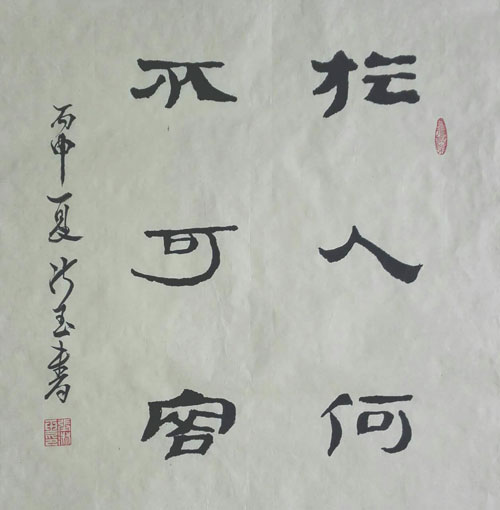 於人何
不可容
丙申夏玉書